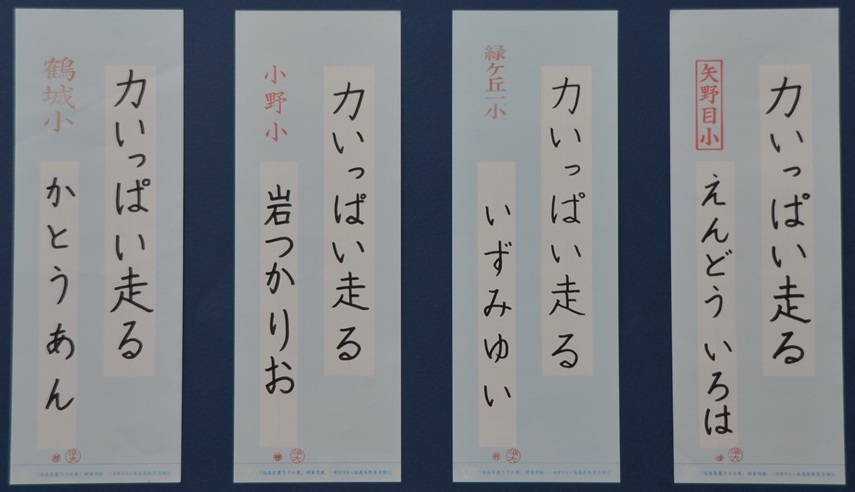 力いっぱい走る
矢野目小
えんどう いろは
力いっぱい走る
緑ケ丘一小
いずみゆい
力いっぱい走る
小野小
岩つかりお
力いっぱい走る
鶴城小
かとうあん